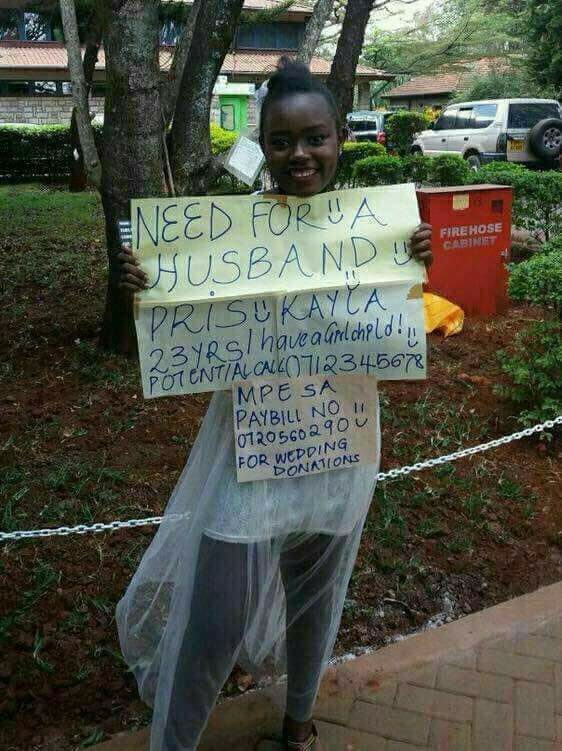 NEED FOR A
HUSBAND
PRIS KAYLA
23YRS I have a Girl child!
POTENTIAL CALL 0712345678
MPESA
PAYBILL NO
0720560290
FOR WEDDING
DONATIONS
FIREHOSE
CABINET